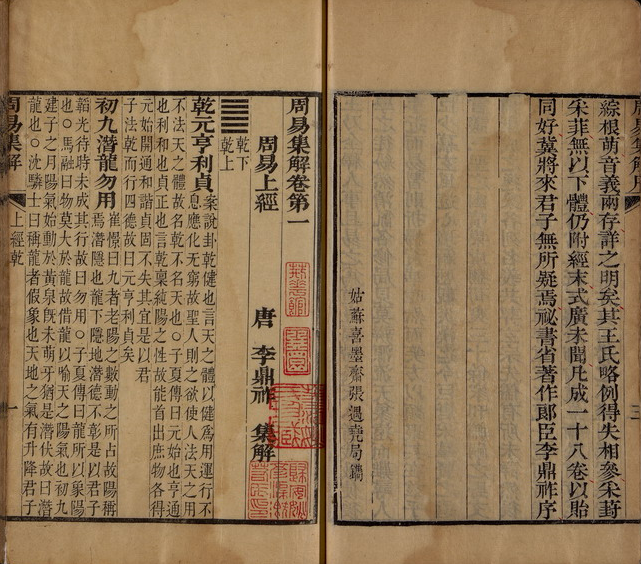 綜根萌音義兩存詳之明矣其王氏略例得失相參采葑
采菲無以下體仍附經末式廣未聞凡成一十八卷以貽
同好冀將來君子無所疑焉祕書省著作郎臣李鼎祚序
三
姑蘇喜墨齋張遇堯局鐫
周易集解卷第一
周易上經
唐 李鼎祚 集解
乾下
乾上
乾元亨利貞案說卦乾健也言天之體以健為用運行不
息應化无窮故聖人則之欲使人法天之用
不法天之體故名乾不名天也○子夏傳曰元始也亨通
也利和也貞正也言乾稟純陽之性故能首出庶物各得
元始開通和諧貞固不失其宜是以君
子法乾而行四德故曰元亨利貞矣
初九潛龍勿用崔憬曰九者老陽之數動之所占故陽稱
焉潛隱也龍下隱地潛德不彰是以君子
韜光待時未成其行故曰勿用○子夏傳曰龍所以象陽
也○馬融曰物莫大於龍故借龍以喻天之陽氣也初九
建子之月陽氣始動於黃泉旣未萌牙猶是潛伏故曰潛
龍也○沈驎士曰稱龍者假象也天地之氣有升降君子
周易集解
上經乾
一